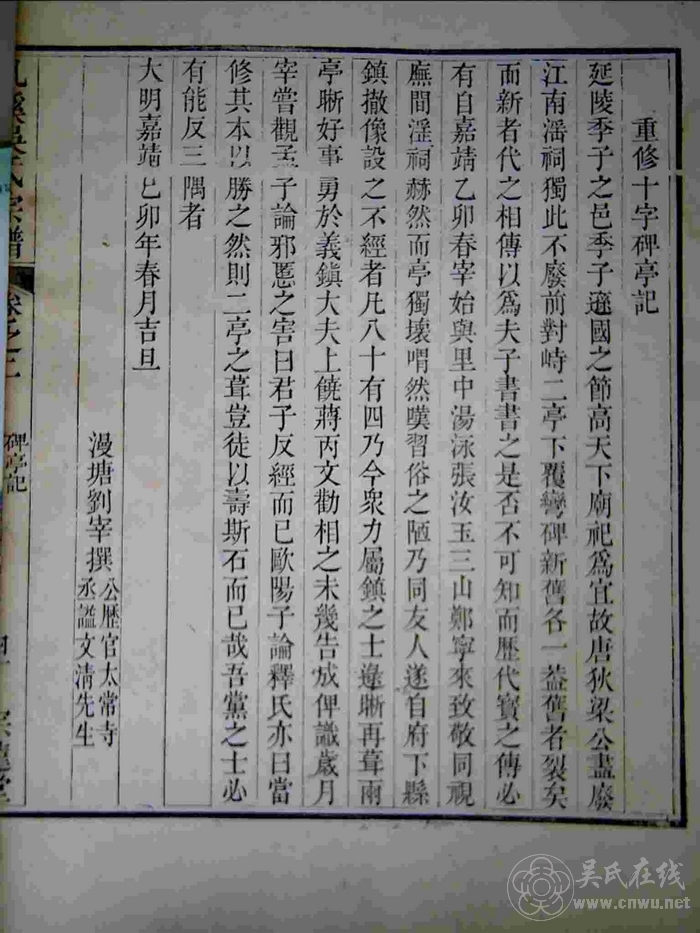 重修十字碑亭記
延陵季子之邑季子遜國之節高天下廟祀爲宜故唐狄梁公盡廢
江南淫祠獨此不廢前對峙二亭下覆碑新舊各一蓋舊者裂矣
而新者代之相傳以爲夫子書書之是否不可知而歷代寶之傳必
有自嘉靖乙卯春宰始與里中湯泳張汝玉三山鄭寧來致敬同視
廡間淫祠赫然而亭獨壞喟然嘆習俗之陋乃同友人遂自府下縣
鎮撤像設之不經者凡八十有四乃今衆力屬鎮之士逵晣再葺兩
亭晣好事勇於義鎮大夫上饒蔣丙文勸相之未幾告成俾識歲月
宰嘗觀孟子論邪慝之害曰君子反經而已歐陽子論釋氏亦曰當
修其本以勝之然則二亭之葺豈徒以壽斯石而已哉吾黨之士必
有能反三隅者
大明嘉靖乙卯年春月吉旦
漫塘劉宰撰 公歷官太常寺丞謚文清先生
吳氏宗譜 卷之二 碑亭記
吴氏在线
www.cnwu.net